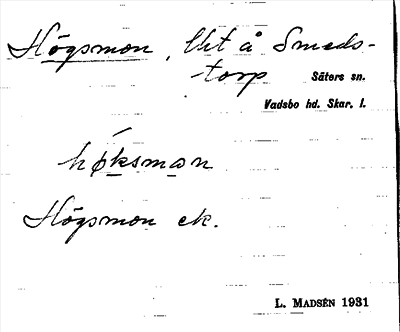 Högsmon, lht å Smeds-
torp Säters sn.
Vadsbo hd. Skar. l.
hǿksman
Högsmon ek.
L. MADSÉN 1931